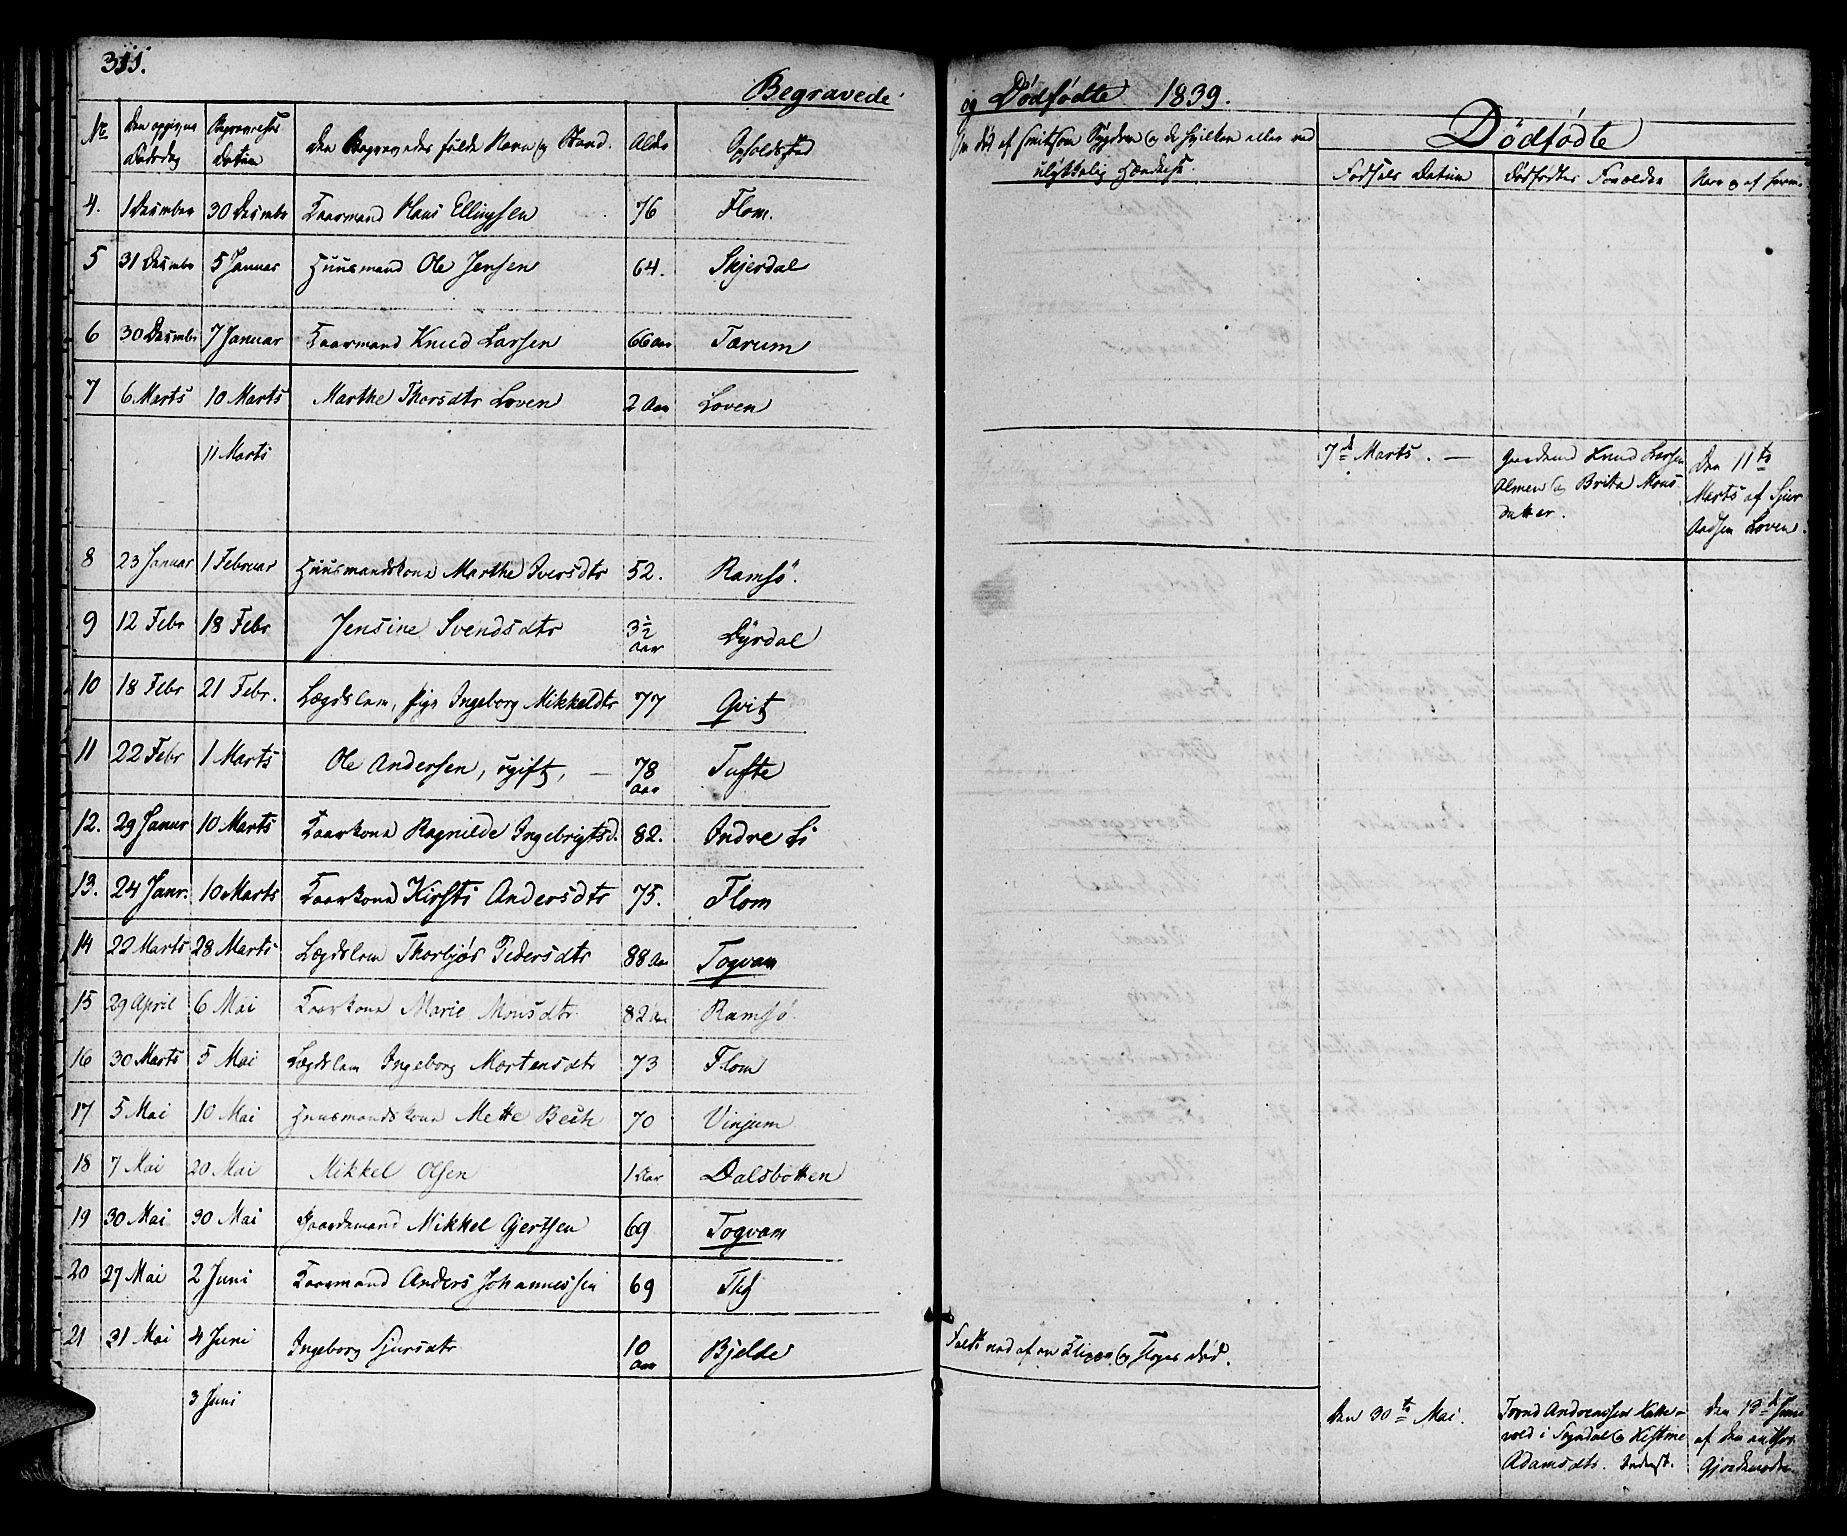 311.
Begravede og Dødfødte 1839.
No Den opgivne Dødsdag Begravelses Datum Den Begravedes fulde Navn og Stand. Alder Opholdssted Om død af smitsom Sygdom
ulykkelig Hændelse.
Dødfødte
Fødsels Datum Dødfødtes Forældre
4. 1 December 30 Decembr Kaarmand Hans Ellingsen 76 Flom.
5 31 Decembr 5 Januar Huusmand Ole Jensen 64. Skjerdal
6 30 Decembr 7 Januar Kaarmand Knud Larsen 66 Aar Tarum
7 6 Marts 10 Marts Marthe Thorsdtr Loven 2 Aar Loven
11 Marts 7d Marts. — Gaardmd Knud Larsen
Almen og Brita Mons
datter.
Den 11te
Marts af Sjur
Loven.
8 23 Januar 1 Februar Huusmandskone Marthe Iversdtr 52. Ramsö.
9 12 Febr 18 Febr Jensine Svendsdtr 3½ Aar Dyrdal
10 18 Febr 21 Febr. Lægdslem, pige Ingeborg Mikkeldtr 77 Qvit
11 22 Febr 1 Marts Ole Andersen, ugift, — 78 Aar Tufte
12. 29 Janur 10 Marts Kaarkone Ragnilde Ingebrigtsd. 82. Indre Li
13. 24 Janr. 10 Marts Kaarkone Kirsti Andersdtr 75. Flom
14 22 Marts 28 Marts Lægdslem Thorbjør Pedersdtr 88 Aar Togvam
15 29 April 6 Mai Kaarkone Marie Monsdtr 82 Aar Ramsö
16 30 Marts 5 Mai Lægdslem Ingeborg Mortensdtr 73 Flom
17 5 Mai 10 Mai Huusmandskone Mette 70 Vinjum
18 7 Mai 20 Mai Mikkel Olsen 1 Aar Dalsbotten
19 30 Mai 30 Mai Gaardmand Mikkel Gjertsen 69 Togvam
20 27 Mai 2 Juni Kaarmand Anders Johannessen 69
21 31 Mai 4 Juni Ingeborg Sjursdtr 10 Aar Bjelde Faldt ned af en Klippe og sloges død.
3 Juni Den 30te Mai. Trond Andreassen
i Sogndal og
Adamsdtr.
Den 13d Juni
af den